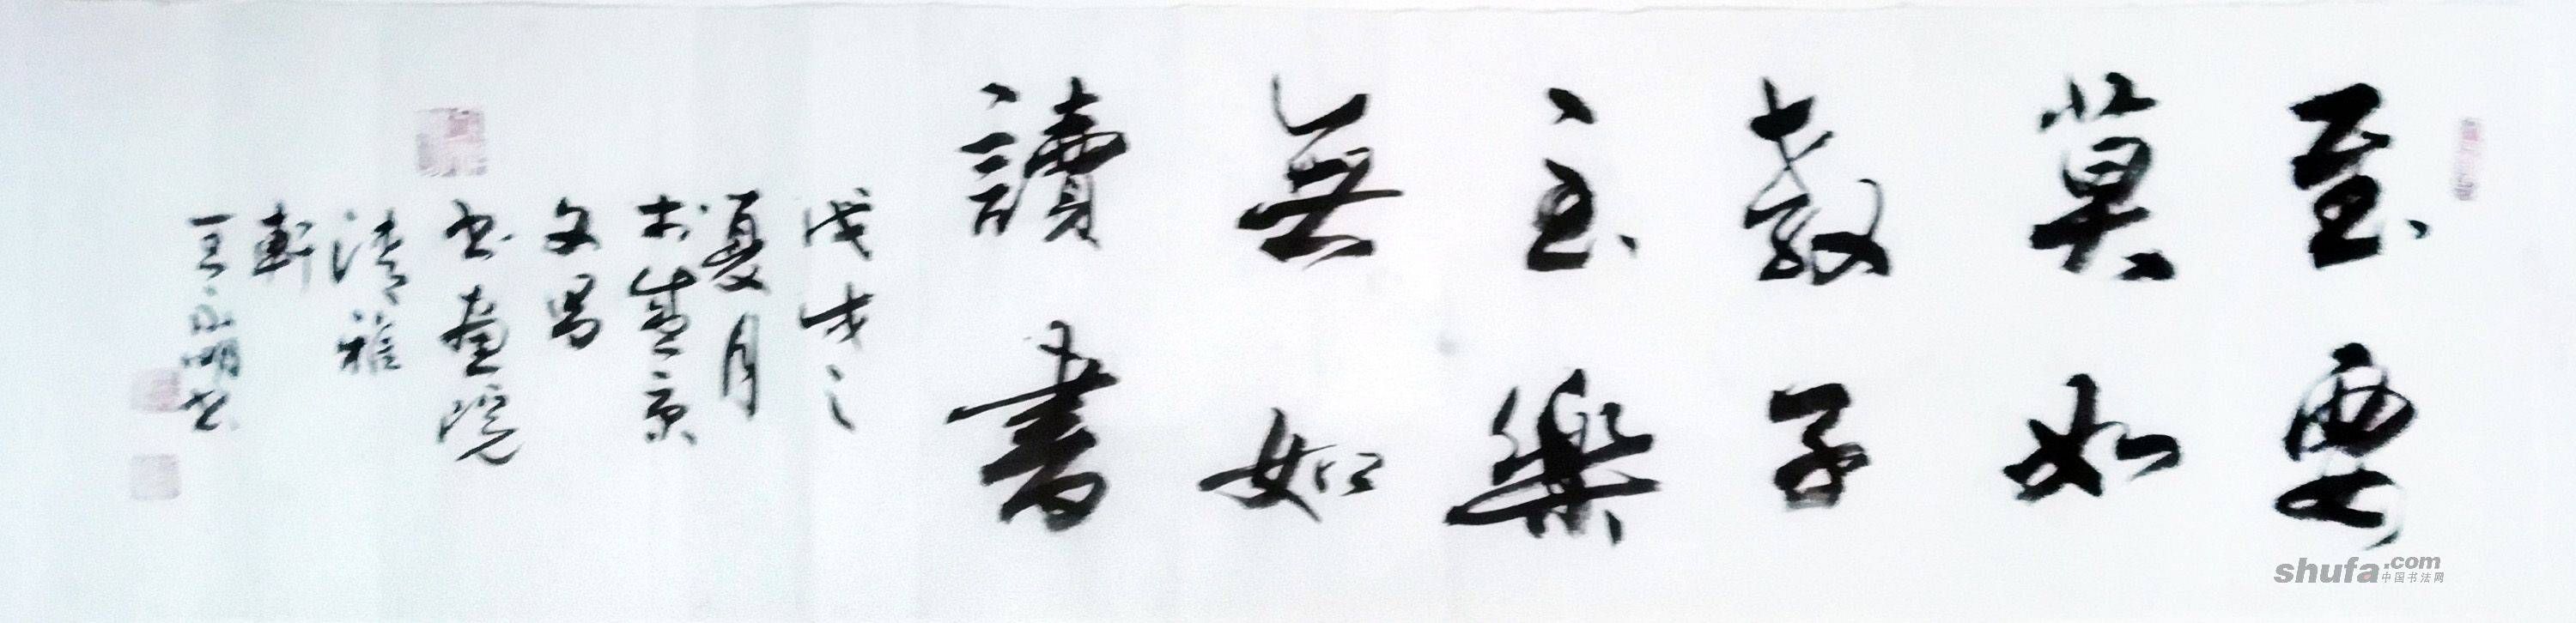 至要
莫如
教子
至樂
無如
讀書
戊戌之
夏月
於盛京
文昌
書畫院
清雅
軒
王永明書
shufa.com
中国书法网